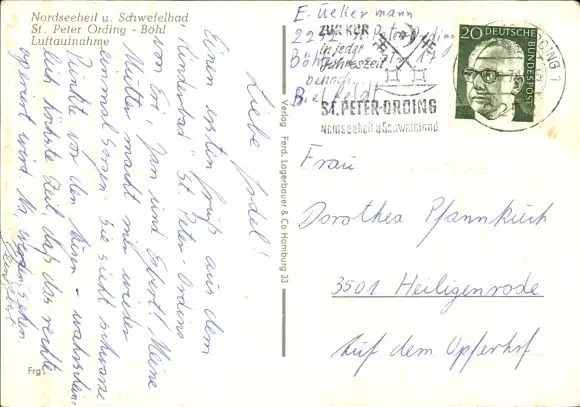 Nordseeheil u. Schwefelbad
St. Peter Ording - Böhl
Luftaufnahme
Liebe
Einen ersten Gruß aus dem
"Kinderbad" St. Peter-Ording
von Eri, Jan und Egbert! Meine
Mutter macht mir wieder
einmal Sorgen. Sie sieht schwarze
Punkte vor den Augen - wahrschein-
lich höchste Zeit, daß das rechte
operiert wird. Na, werden sehen.
Frg.
Verlag Ferd. Lagerbauer & Co Hamburg 33
E. Ueckermann
2252 St. Peter Ording
Böhl
Bielefeldt
ZUR KUR
in jeder
Jahreszeit
nach
ST. PETER-ORDING
Nordseeheil u Schwefelbad
ORDING 1
20 DEUTSCHE
BUNDESPOST
Frau
Dorothea Pfannkuch
3501 Heiligenrode
Auf dem Opferhof